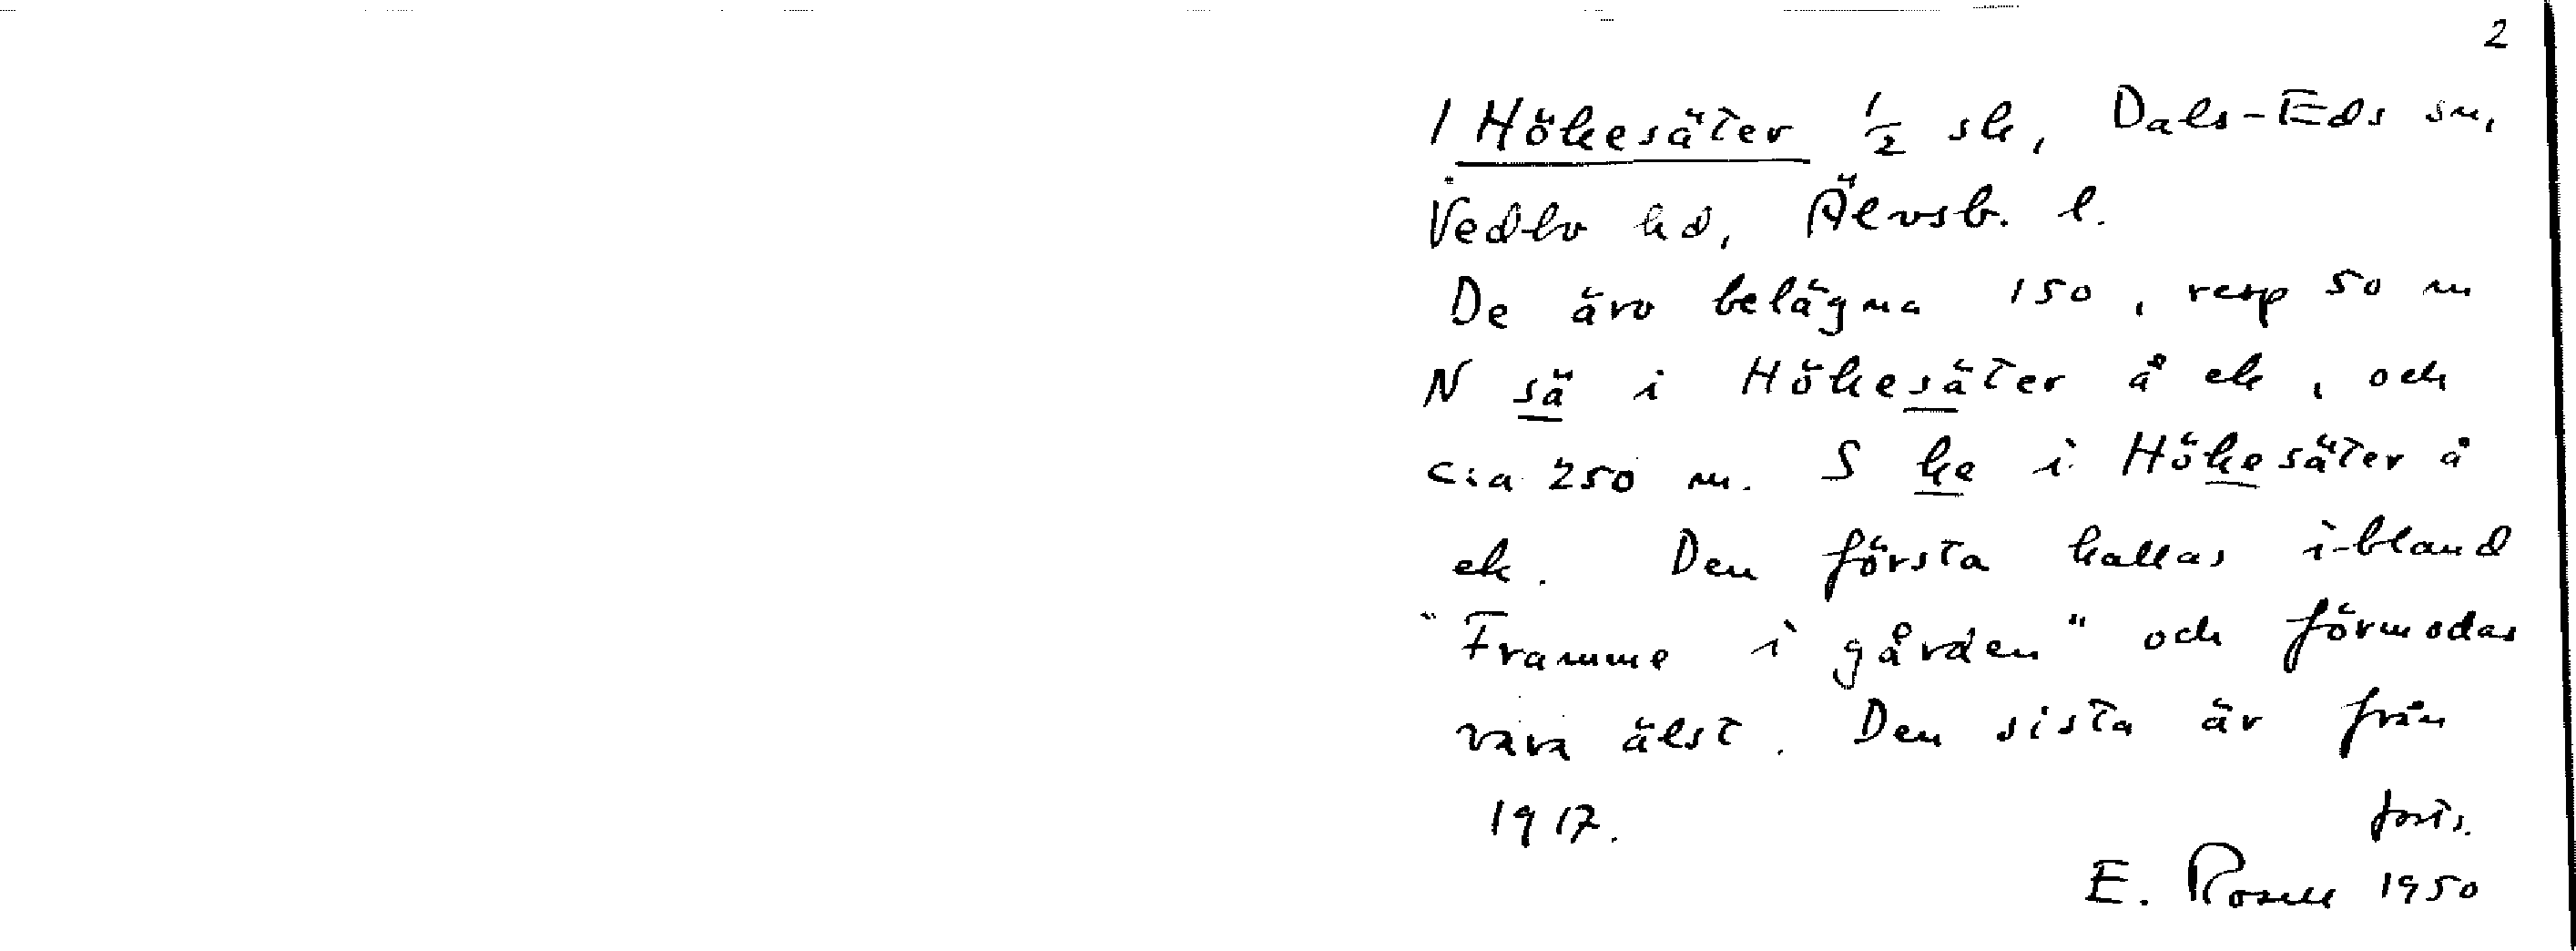 2
1 Hökesäter 1/2 sk, Dals-Eds sn,
Vedbo hd, Älvsb. l.
De äro belägna 150, resp 50 m
N sä i Hökesäter å ek, och
c:a 250 m. S ke i Hökesäter å
ek. Den första kallas ibland
"Framme i gården" och förmodas
vara älst. Den sista är från
1917. forts.
E. Rosell 1950